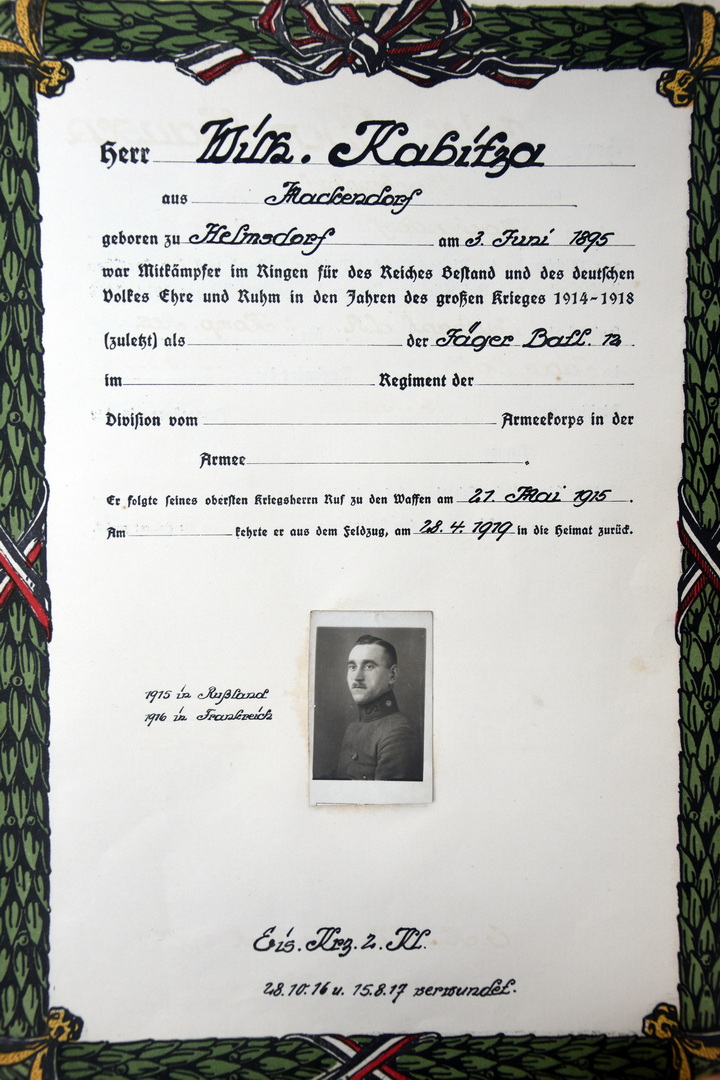 Herr Wilh. Kabitza
aus Mackendorf
geboren zu Helmsdorf am 3. Juni 1895
war Mitkämpfer im Ringen für des Reiches Bestand und des deutschen
Volkes Ehre und Ruhm in den Jahren des großen Krieges 1914-1918
(zuletzt) als der Jäger Batl. 12.
im Regiment der
Division vom Armeekorps in der
Armee .
Er folgte seines obersten Kriegsherrn Ruf zu den Waffen am 21. Mai 1915 .
Am kehrte er aus dem Feldzug, am 28. 4. 1919 in die Heimat zurück.
1915 in Rußland
1916 in Frankreich
Eis. Krz. 2. Kl.
28.10.16 u. 15.8.17 verwundet.